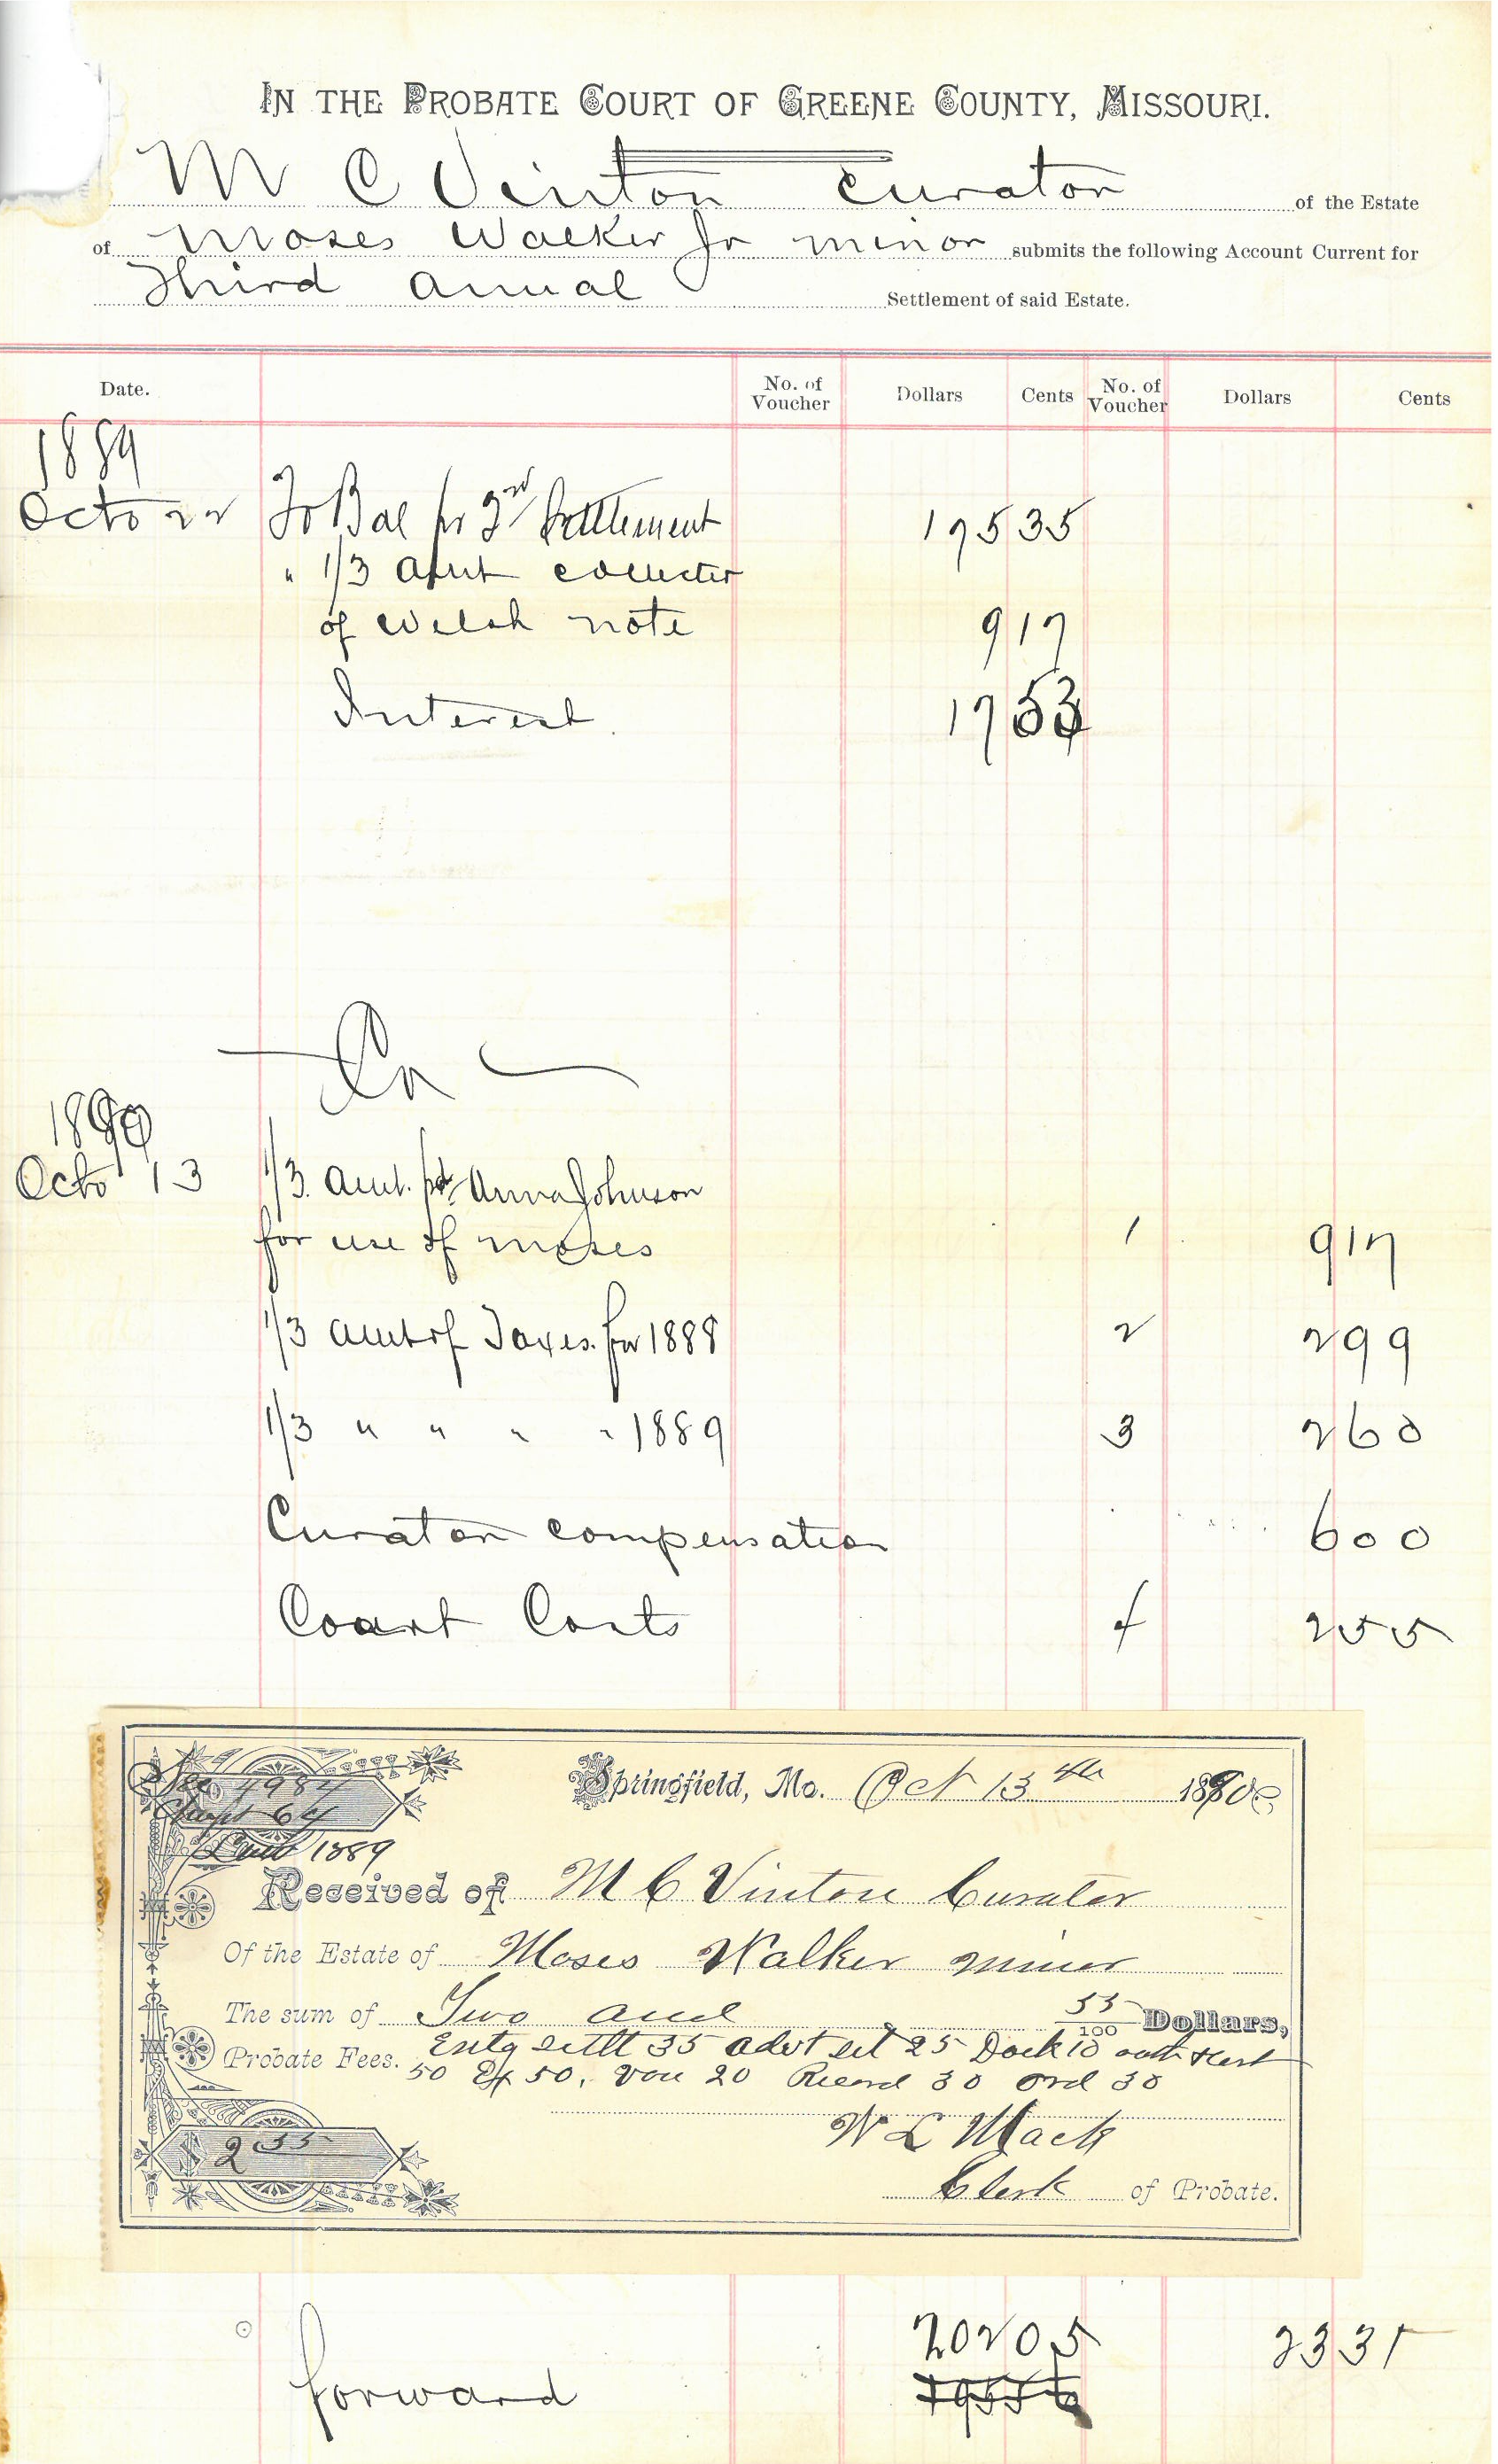 IN THE PROBATE COURT OF GREENE COUNTY, MISSOURI.
M C Vinton Curator of the Estate
of Moses Walker Jr minor submits the following Account Current for
Third Anual Settlement of said Estate.
Date. No. of Voucher Dollars Cents No. of Voucher Dollars Cents
1889
Octo 22 To Bal pr 2nd Settlement 175 35
" 1/3 amt collecter
of Welsh note 9 17
Interest 17 53
Cr
1890
Octo 13 1/3 amt. pd Anna Johnson
for use of Moses 1 9 17
1/3 amt of Taxes for 1888 2 2 99
1/3 " " " " 1889 3 2 60
Curator compensation 6 00
Court Costs 4 2 55
Springfield, Mo. Oct 13th 1890
1889
Received of M C Vinton Curator
Of the Estate of Moses Walker minor
The sum of Two and 55/100 Dollars,
Probate Fees. Entg settt 35 advt set 25 Dock 10 oath
50 Ex 50, Vou 20 Record 30 Ord 30
W L Mack
$ 2 55
Clerk of Probate.
202 05 23 31
forward